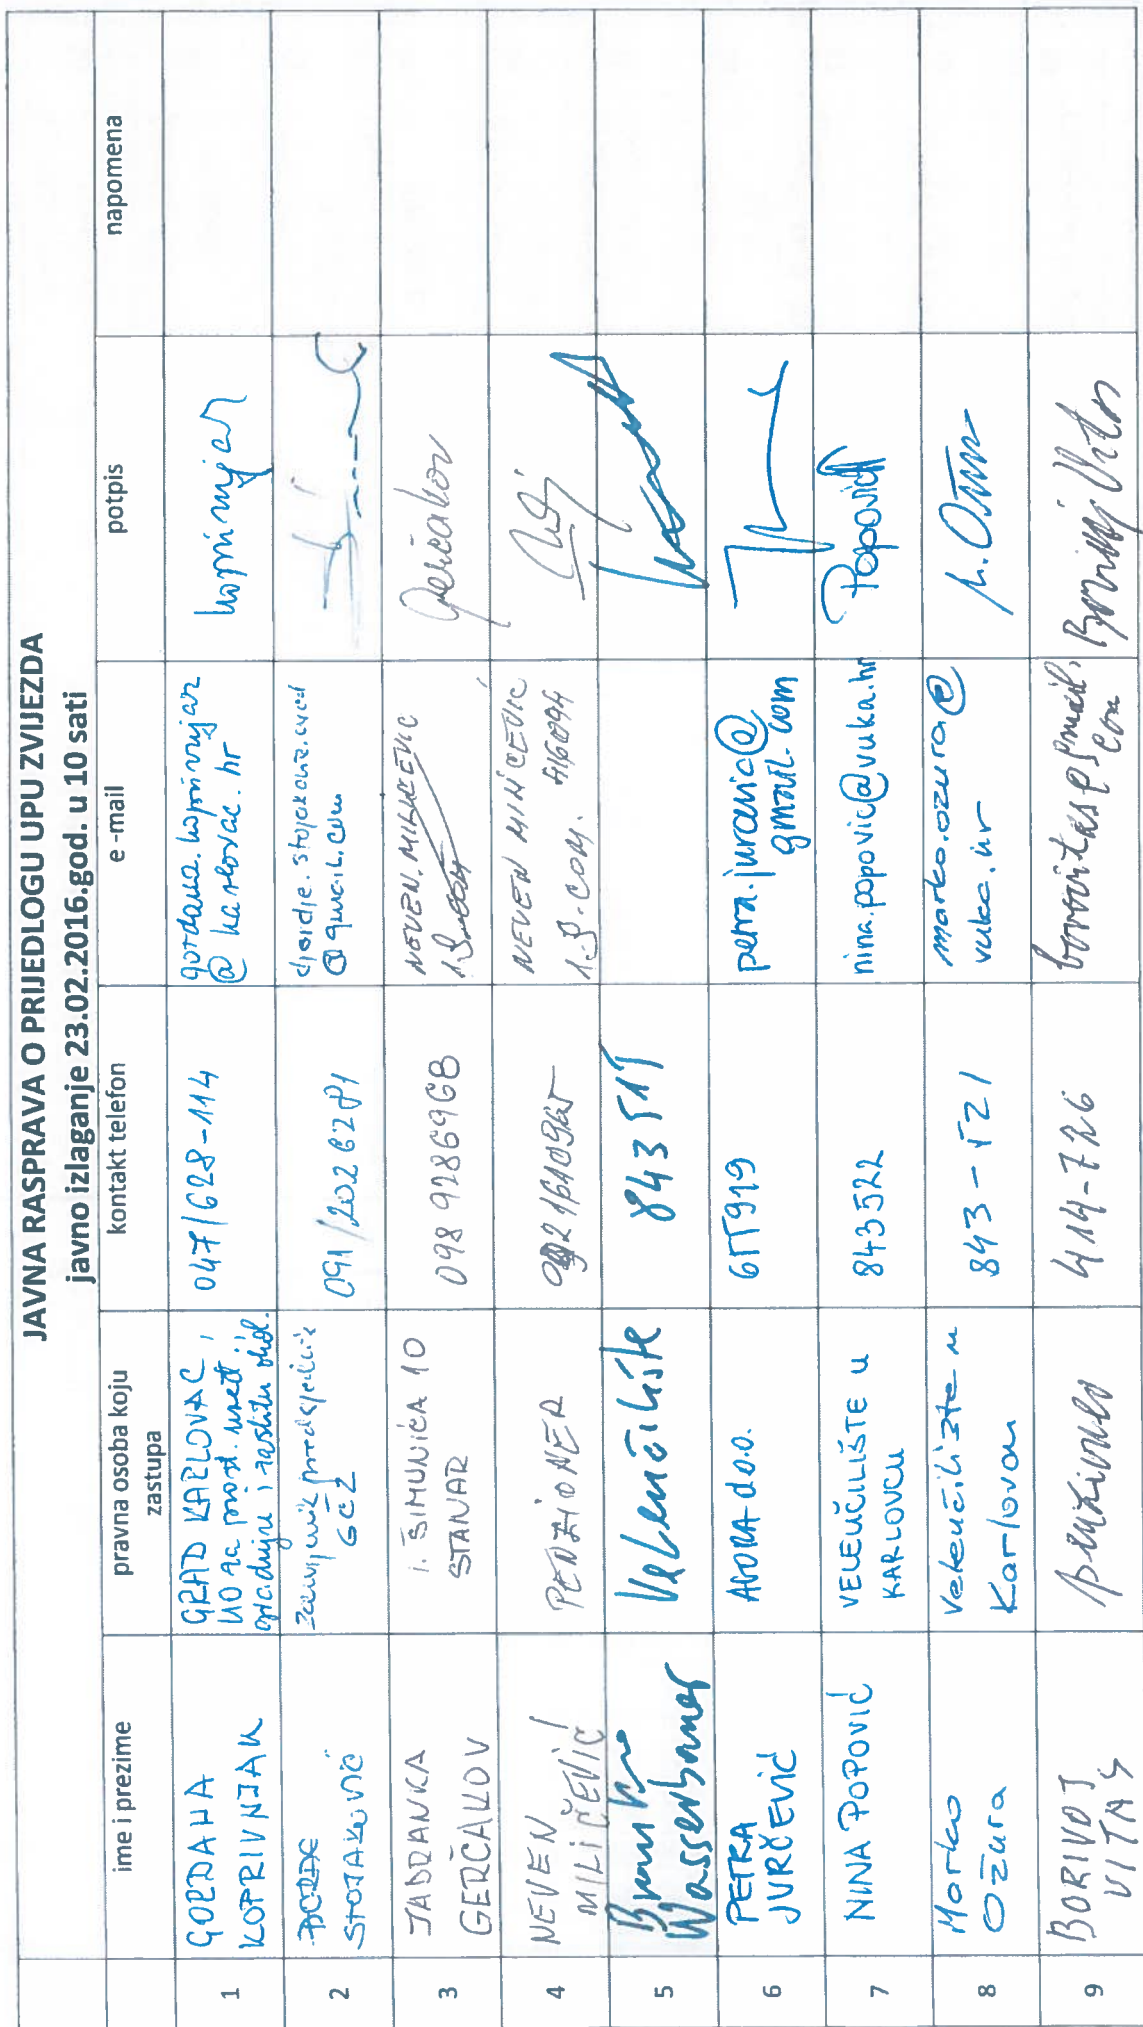 JAVNA RASPRAVA O PRIJEDLOGU UPU ZVIJEZDA
javno izlaganje 23.02.2016.god. u 10 sati
ime i prezime
pravna osoba koju
zastupa
kontakt telefon
e -mail
potpis
napomena
1
GORDANA
KOPRIVNJAK
GRAD KARLOVAC,
UO za prost. uređ.,
gradnju i zaštitu okol.
047/628-114
gordana.koprivnjak
@ karlovac.hr
koprivnjak
2
STOJAKOVIĆ
zamjenik predsjednik
GČZ
091/2026281
@ gmail.com
3
JADRANKA
GERČAKOV
I. ŠIMUNIĆA 10
STANAR
098 9286968
Gerčakov
4
NEVEN
MILIČEVIĆ
PENZIONER
5
Branko
Wasserbauer
Veleučilište
843 515
6
PETRA
JURČEVIĆ
AGORA d.o.o.
655919
petra.jurcevic@
gmail.com
7
NINA POPOVIĆ
VELEUČILIŠTE U
KARLOVCU
843522
nina.popovic@vuka.hr
Popović
8
Marko
Ožura
Veleučilište u
Karlovcu
843-521
marko.ozura@
vuka.hr
M. Ožura
9
BORIVOJ
VITAS
414-726
Borivoj Vitas